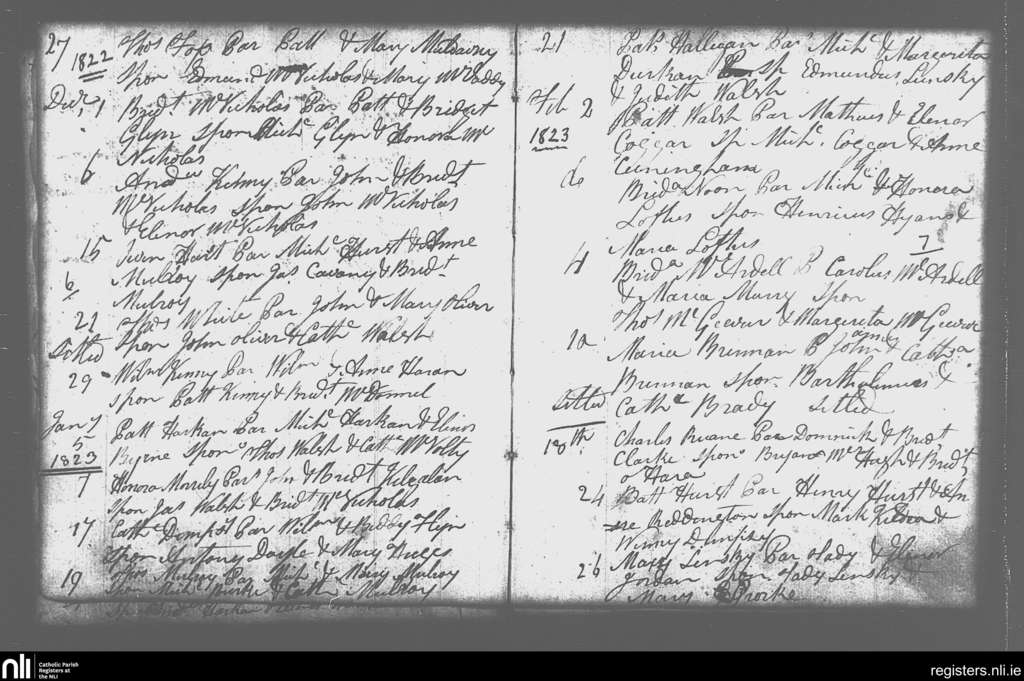 27 Thos Fox Par Patt & Mary
1822 Spon Edmund McNicholas & Mary
Decr 1 Bridt McNicholas Par Patt & Bridget
Glyn Spon Michl Glyn & Honora Mc
Nicholas
6 Andw Kinny Par John & Bridt
McNicholas Spon John McNicholas
& Elenor McNicholas
15 Hurst Par Michl Hurst & Anne
Mulroy Spon Jas Cavany & Bridt
6 Mulroy
21 Thos White Par John & Mary Oliver
Settled Spon John Oliver & Cathe Walsh
29 Wilm Kenny Par Wilm & Anne Haran
Spon Patt Kinny & Bridt McDonnel
Jany Patt Harkan Par Michl Harkan & Elinor
5 Byrne Spon Thos Walsh & Cathe McNolty
1823
7 Honora Morrily Pars John & Bridt
Spon Jas Walsh & Bridt McNicholas
17 Cathe Par Wilm & Biddy Flyn
Spon Antony Doyle & Mary
19 Thos Mulroy Par Michl & Mary Mulroy
Spon Michl Burke & Cath Mulroy
21 Pat Halligan Par Michl & Margerita
Durkan Sp Edmundus Lensky
& Judith Walsh
Feb 2 Patt Walsh Par Mathius & Elenor
1823 Coggar Sp Michl Coggar & Anne
Cuningham
do Brida Noon Par Michl & Honora
Loftus Spon Henricus Hyans &
Maria Loftus 7
4 Brida McArdell P Carolus McArdell
& Maria Murry Spon
Thos McGewer & Margerita McGewer
10 Maria Brennan P John & Catha
Brennan Spon Bartholomeus &
Settled Cathe Brady Settled
18th Charles Ruane Par Dominick & Bridt
Clarke Spons Bryan McHugh & Bridt
o Hara
24 Patt Hurst Par Henry Hurst & An
ne Reddington Spon Mark &
Winny
26 Mary Lensky Par Hady & Elenor
Jordan Spon Hady Lensky &
Mary Brorke
nli Catholic Parish
Registers at
the NLI
registers.nli.ie